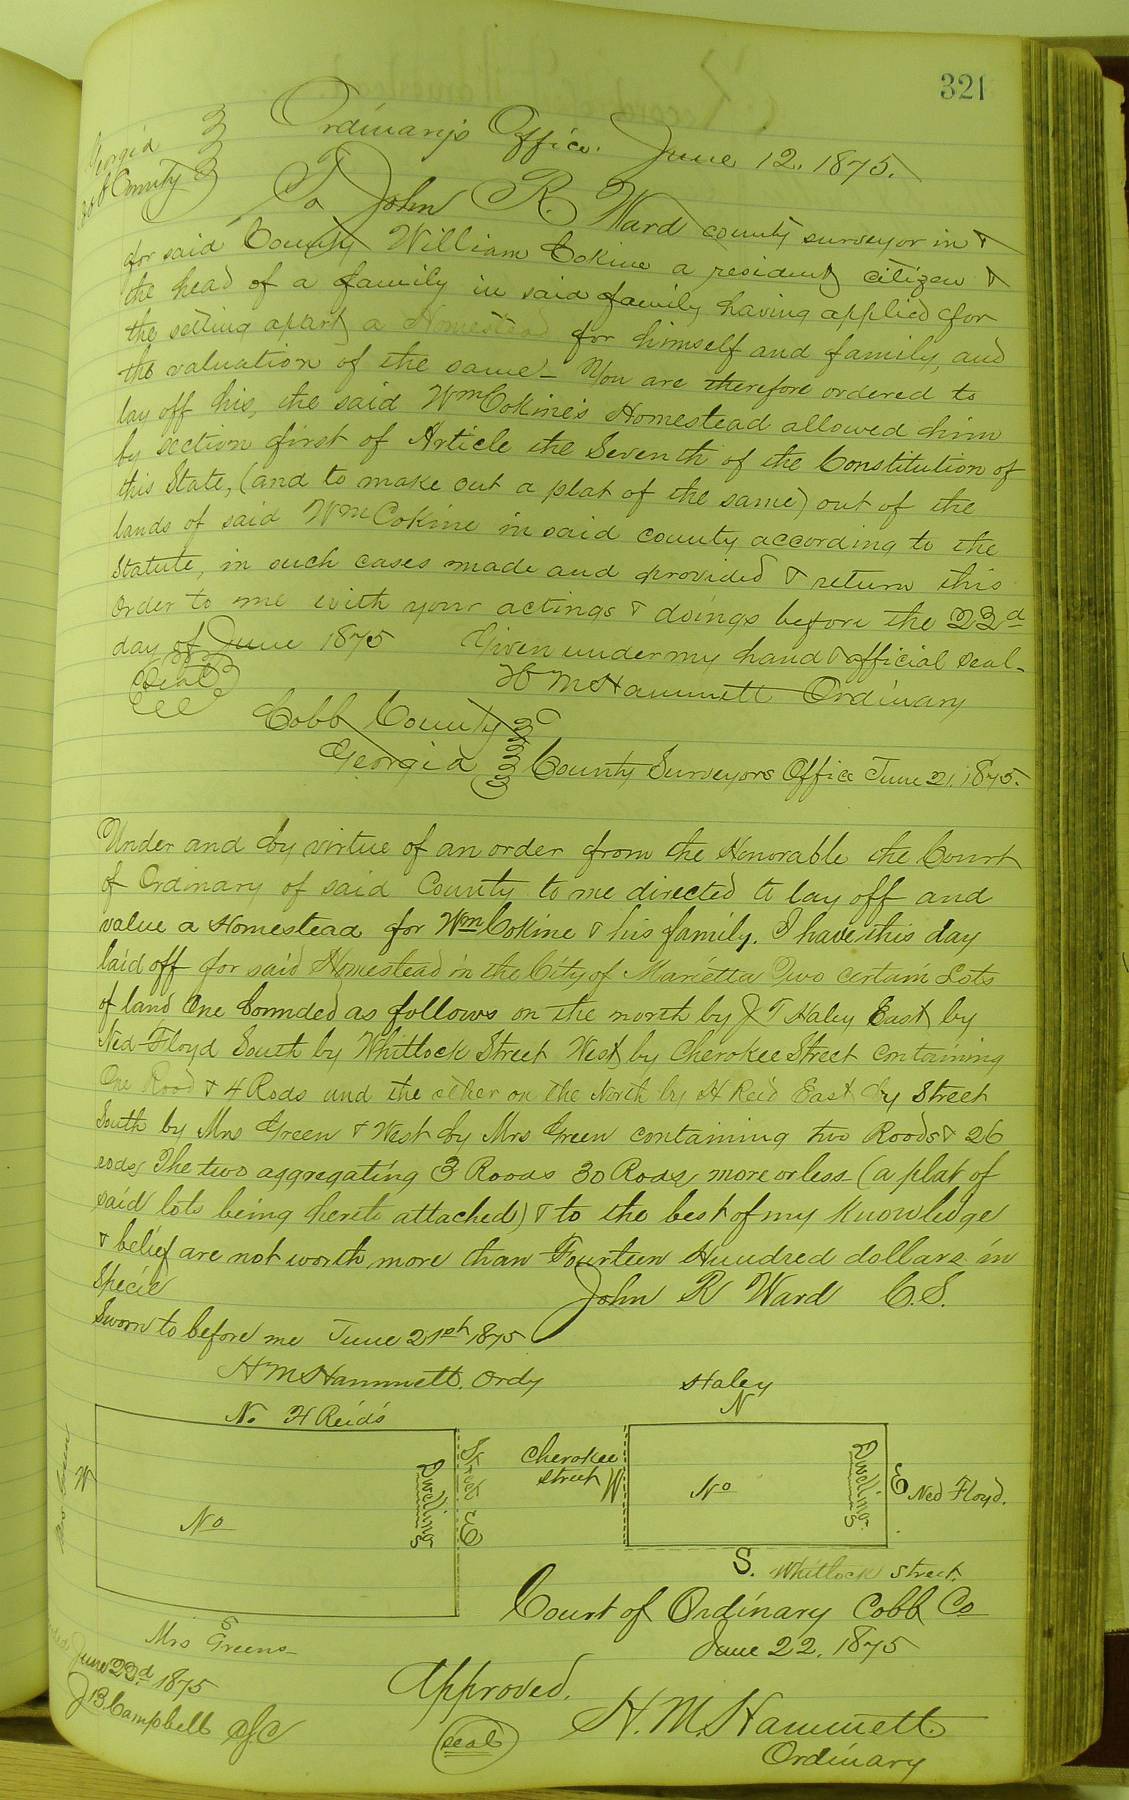 321
Georgia
Cobb County
Ordinary's Office. June 12. 1875.
To John R. Ward county surveyor in &
for said County William Cokine a resident citizen &
the head of a family in said family having applied for
the setting apart a Homestead for himself and family, and
the valuation of the same - You are therefore ordered to
lay off his, the said Wm Cokine's Homestead allowed him
by section first of Article the Seventh of the Constitution of
this State, (and to make out a plat of the same) out of the
lands of said Wm Cokine in said county according to the
Statute, in such cases made and provided & return this
Order to me with your actings & doings before the 22d
day of June 1875 Given under my hand & official seal-
Seal H M Hammett Ordinary
Cobb County
Georgia County Surveyors Office June 21, 1875.
Under and by virtue of an order from the Honorable the Court
of Ordinary of said County to me directed to lay off and
value a Homestead for Wm Cokine & his family. I have this day
laid off for said Homestead in the City of Marietta Two certain Lots
of land One bounded as follows on the north by J T Haley East by
Ned Floyd South by Whitlock Street West by Cherokee Street containing
One Rood & 4 Rods and the other on the North by H Reid East by Street
South by Mrs Green & West by Mrs Green containing two Roods & 26
rods, The two aggregating 3 Roods 30 Rods, more or less - (a plat of
said lots being hereto attached) & to the best of my Knowledge
& belief are not worth more than Fourteen Hundred dollars in
Specie John R Ward C.S.
Sworn to before me June 21st 1875
H M Hammett. Ordy
Haley
N
No H Reid's
W
No
Dwelling
Street E
Cherokee
street W
No
Dwelling
E Ned Floyd.
S. Whitlock street.
S
Mrs Greens
Court of Ordinary Cobb Co
June 22. 1875
Approved.
H. M. Hammett
Ordinary
seal
June 23d 1875
J B Campbell